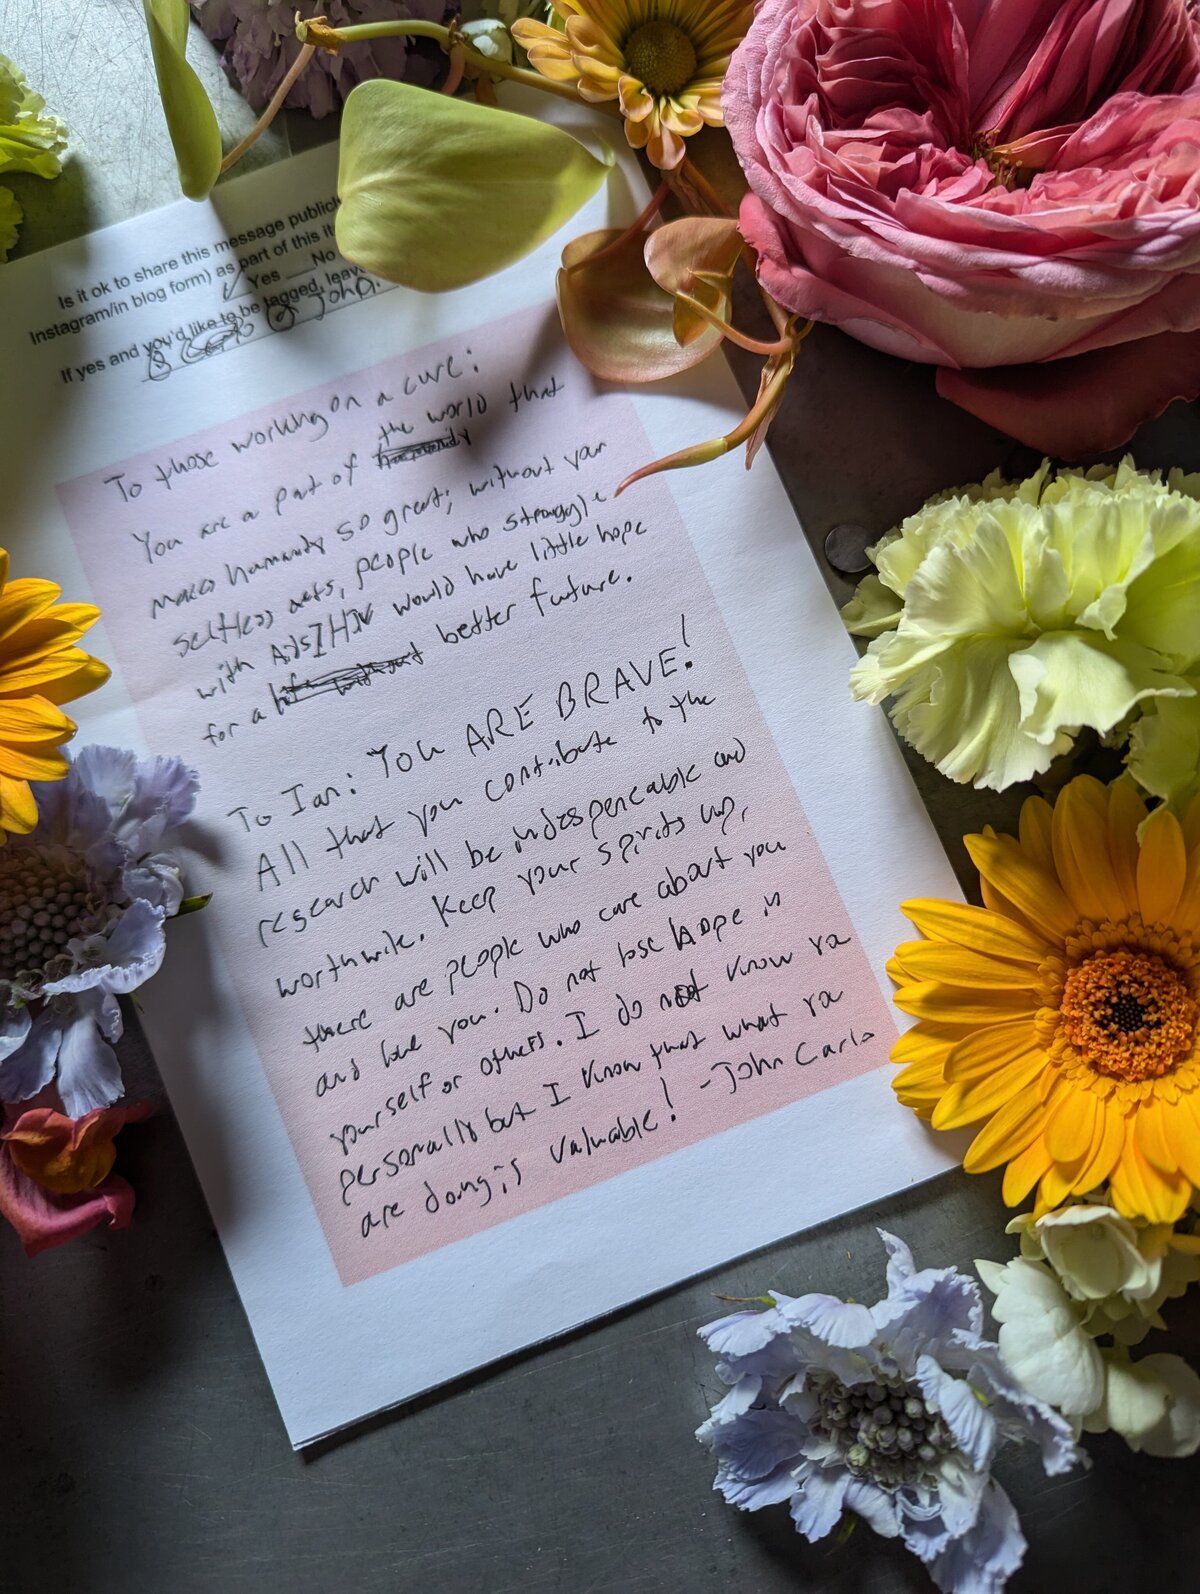 Is it ok to share this message publicly
Instagram/in blog form) as part of this
Yes No
If yes and you'd like to be tagged, leave
To those working on a cure:
You are a part of the world that
makes humanity so great; without your
selfless acts, people who struggle
with AIDS/HIV would have little hope
for a better future.
To Ian: YOU ARE BRAVE!
All that you contribute to the
research will be indespencable and
worthwile. Keep your spirits up,
there are people who care about you
and love you. Do not lose hope in
yourself or others. I do not know ya
personally but I know that what ya
are doing is valuable! -John Carlo